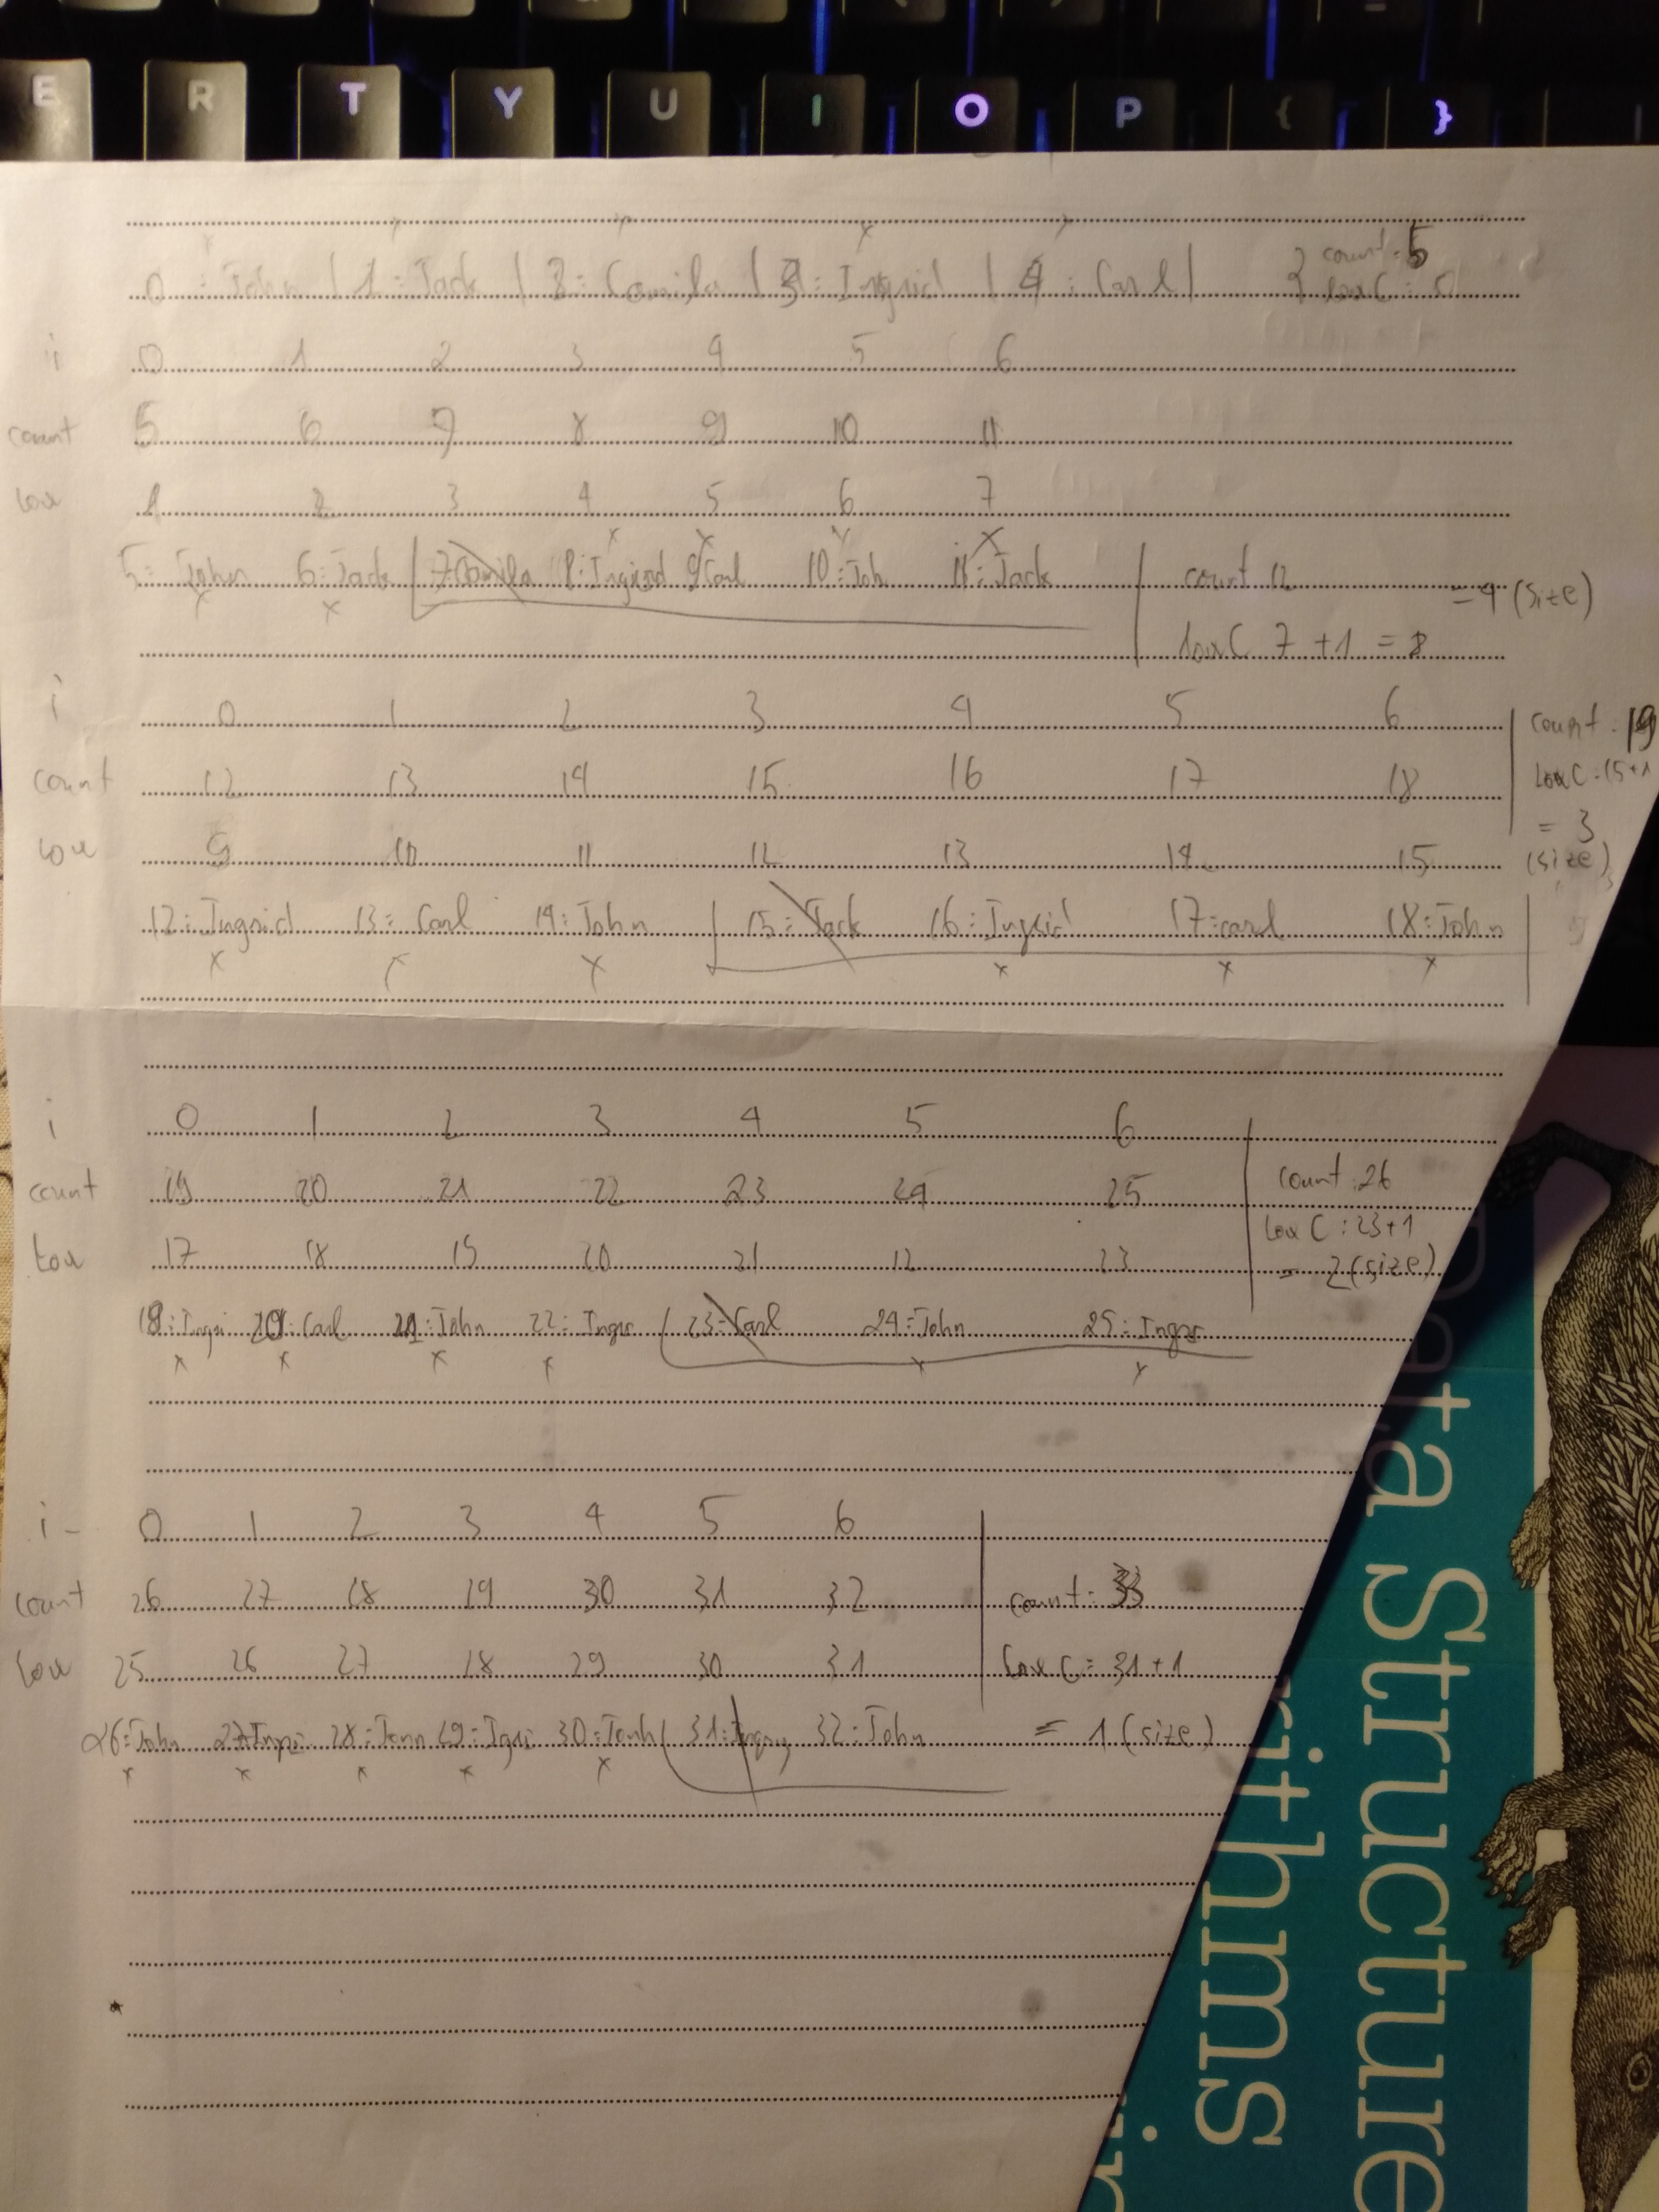 E R T Y U I O P { }
0 : John | 1 : Jack | 2 : Camila | 3 : Ingrid | 4 : Carl | count : 5
lowC : 0
i 0 1 2 3 4 5 6
count 5 6 7 8 9 10 11
low 1 2 3 4 5 6 7
5: John 6: Jack 7: Camila 8: Ingird 9: Carl 10: Joh 11: Jack count 12
= 4 (size)
lowC 7 +1 = 8
i 0 1 2 3 4 5 6 count : 19
count 12 13 14 15 16 17 18 lowC : 15+1
= 3
low 9 10 11 12 13 14 15 (size)
12: Ingrid 13: Carl 14: John 15: Jack 16: Ingrid 17: carl 18: John
i 0 1 2 3 4 5 6
count 19 20 21 22 23 24 25 count : 26
low 17 18 19 20 21 22 23 lowC : 23+1
= 2 (size)
19: Ingri 20: Carl 21: John 22: Ingr 23: Carl 24: John 25: Ingr
i - 0 1 2 3 4 5 6
count 26 27 28 29 30 31 32 count : 33
low 25 26 27 28 29 30 31 lowC = 31 +1
26: John 27: Ingri 28: John 29: Igri 30: Jonh 32: John = 1 (size)
Data Structure
rithms
in